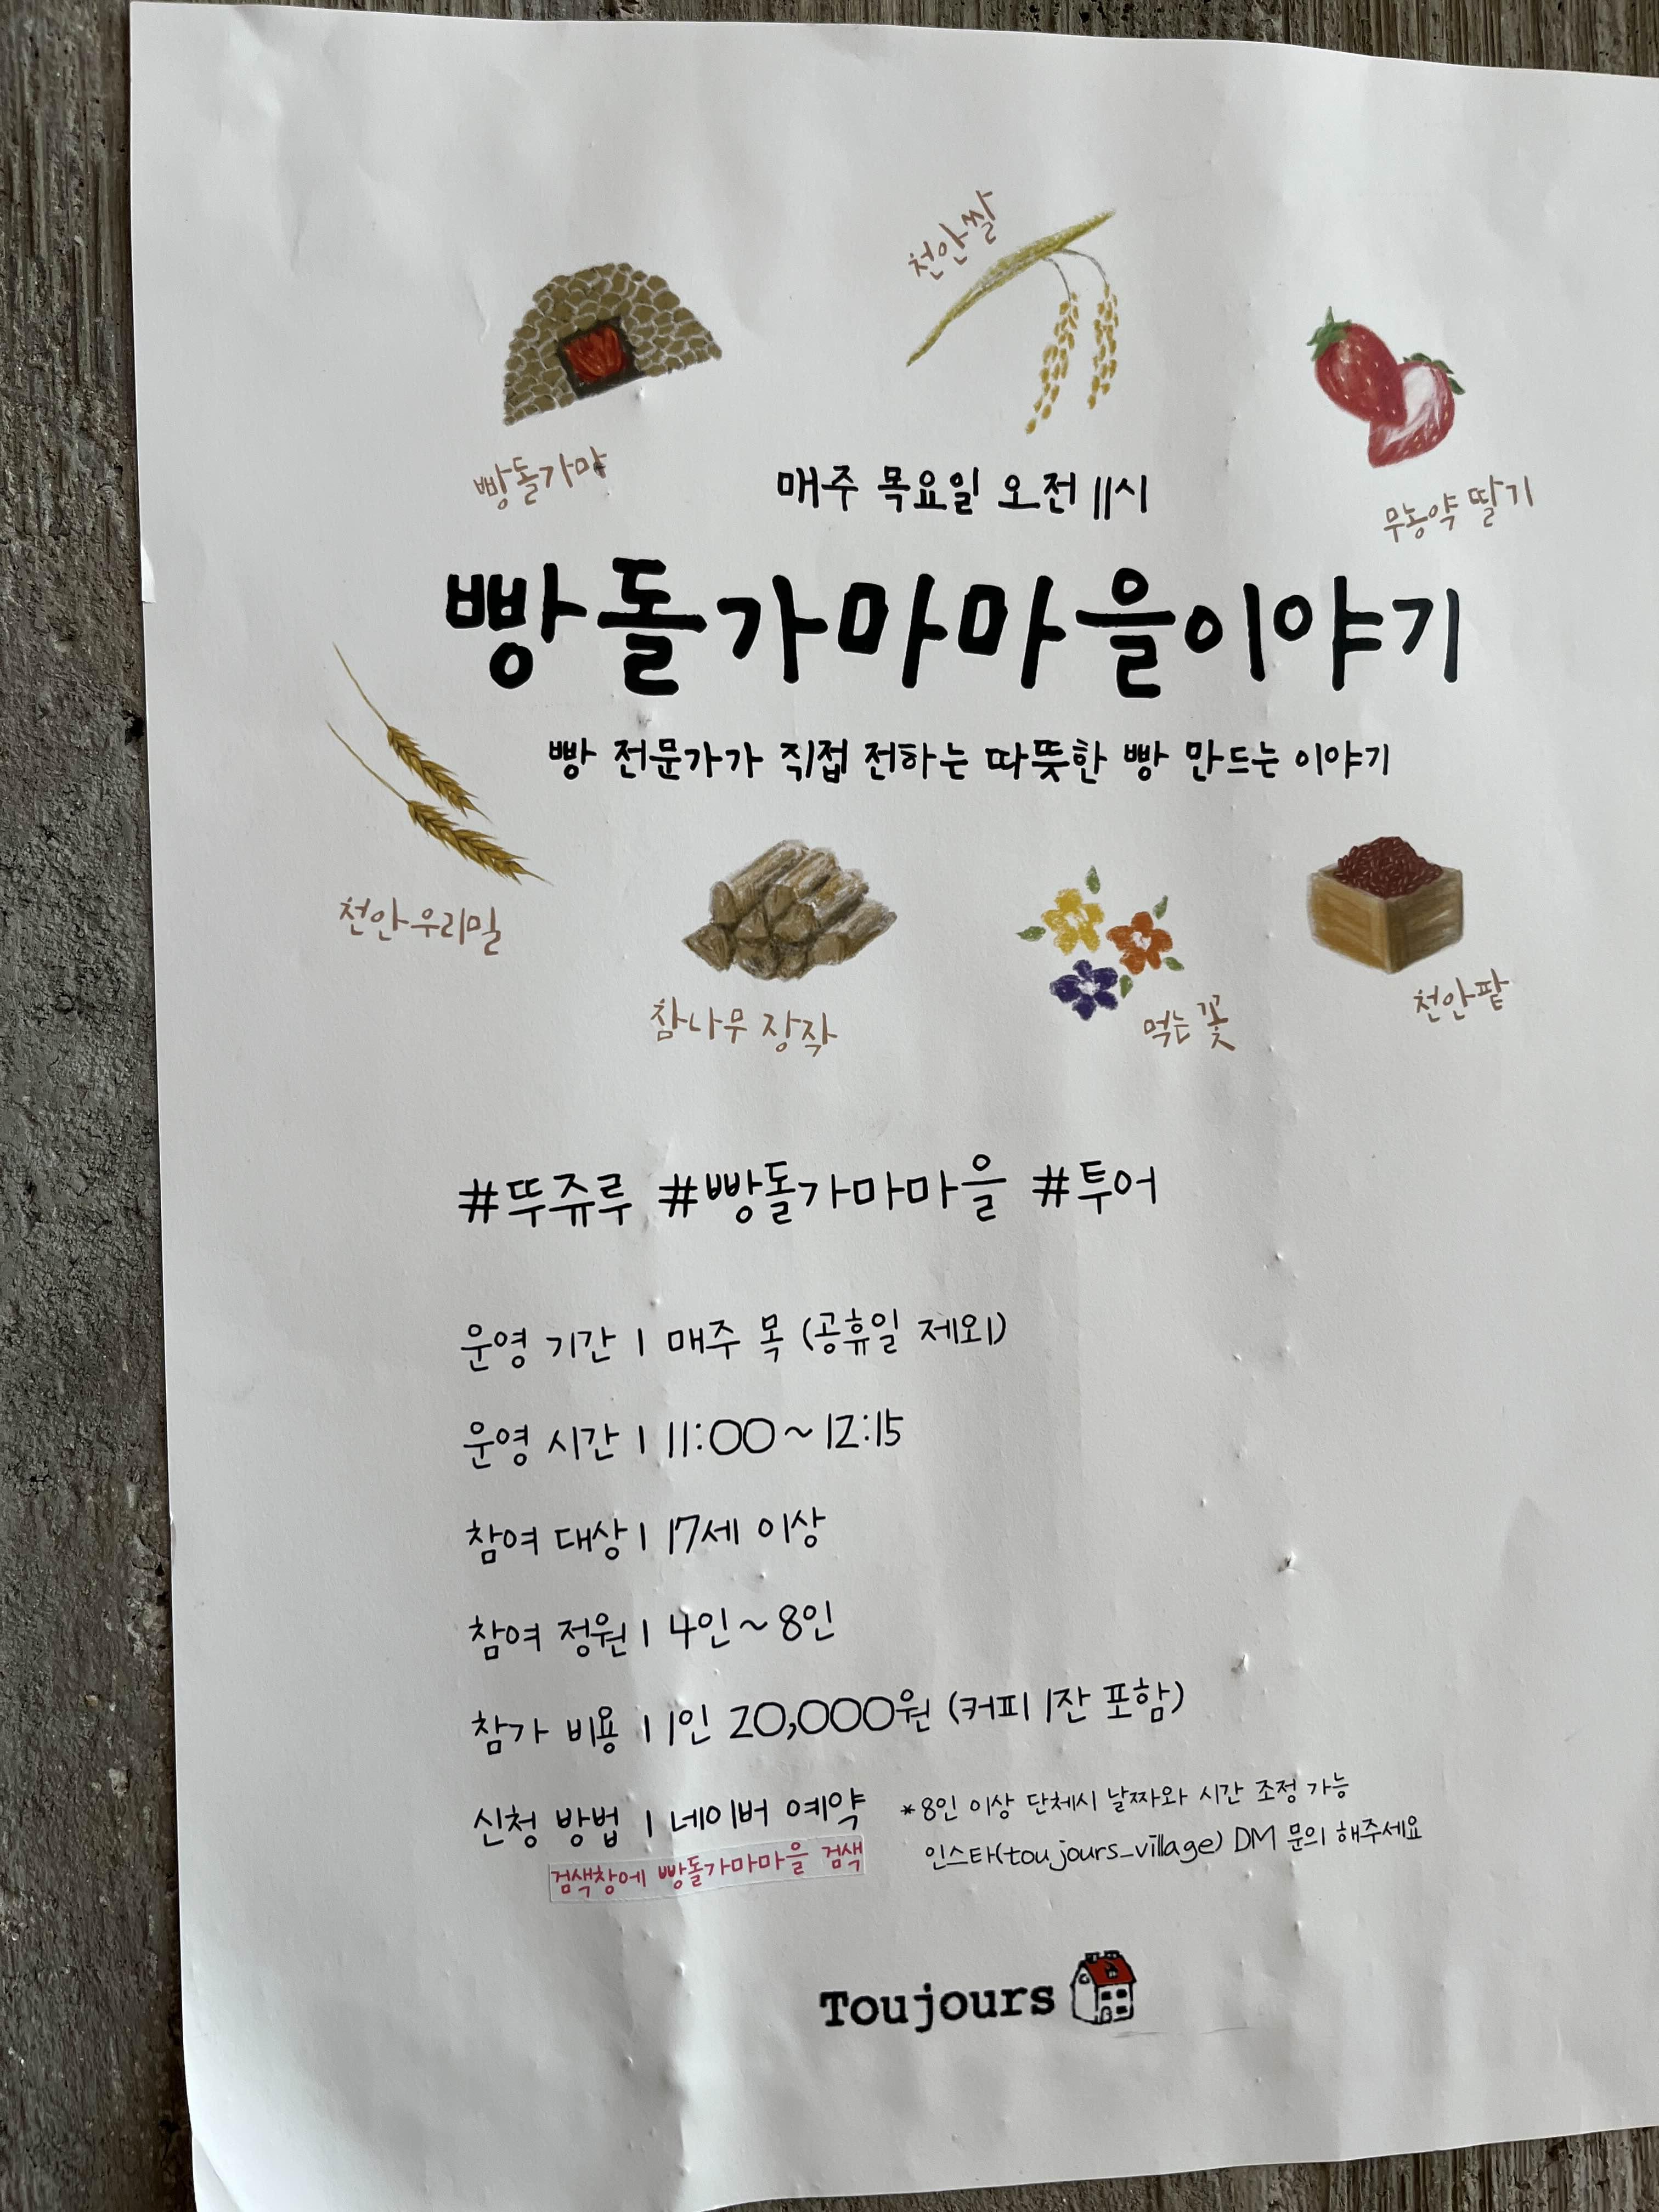 천안쌀
빵돌가마
무농약 딸기
매주 목요일 오전 11시
빵돌가마마을이야기
빵 전문가가 직접 전하는 따뜻한 빵 만드는 이야기
천안우리밀
참나무 장작
먹는 꽃
천안팥
#뚜쥬루 #빵돌가마마을 #투어
운영 기간 | 매주 목 (공휴일 제외)
운영 시간 | 11:00~12:15
참여 대상 | 17세 이상
참여 정원 | 4인~8인
참가 비용 | 1인 20,000원 (커피 1잔 포함)
신청 방법 | 네이버 예약
검색창에 빵돌가마마을 검색
*8인 이상 단체시 날짜와 시간 조정 가능
인스타(toujours_village) DM 문의 해주세요
Toujours